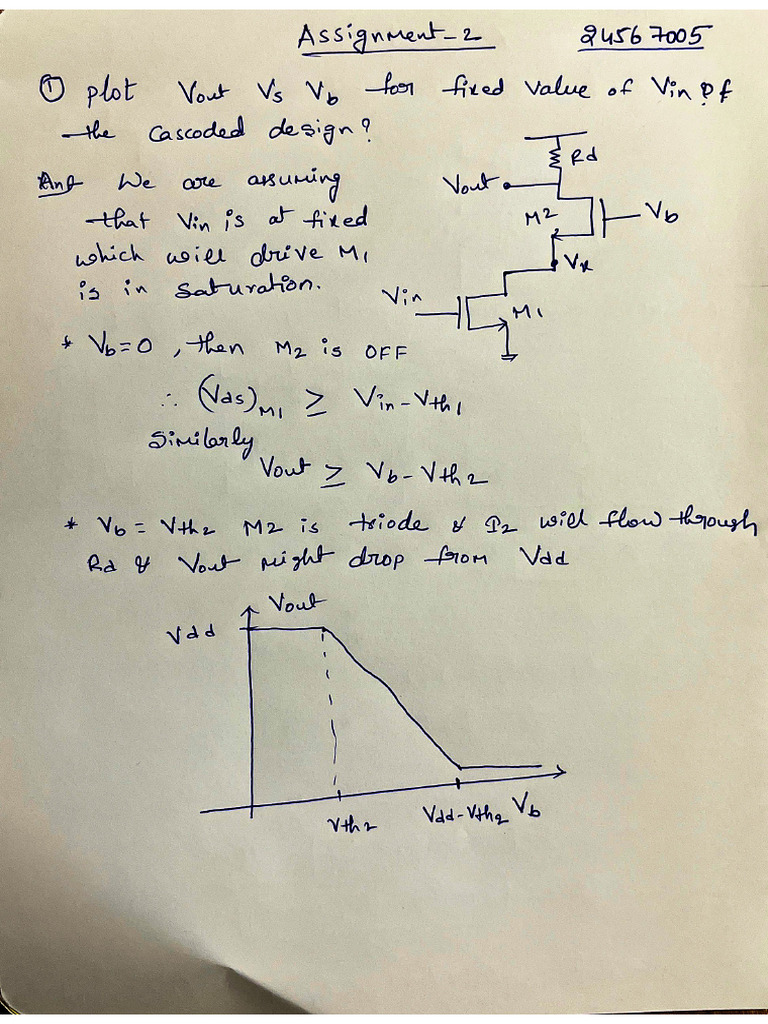 Assignment-2 24567005
① plot Vout Vs Vb for fixed value of Vin of
the cascoded design?
Ans We are assuming
that Vin is at fixed
which will drive M1
is in saturation.
Rd
Vout
M2
Vb
Vx
Vin
M1
* Vb=0, then M2 is OFF
∴ (Vds)M1 ≥ Vin-Vth1
Similarly
Vout ≥ Vb-Vth2
* Vb = Vth2 M2 is triode & I2 will flow through
Rd & Vout might drop from Vdd
Vout
Vdd
Vth2 Vdd-Vth2 Vb